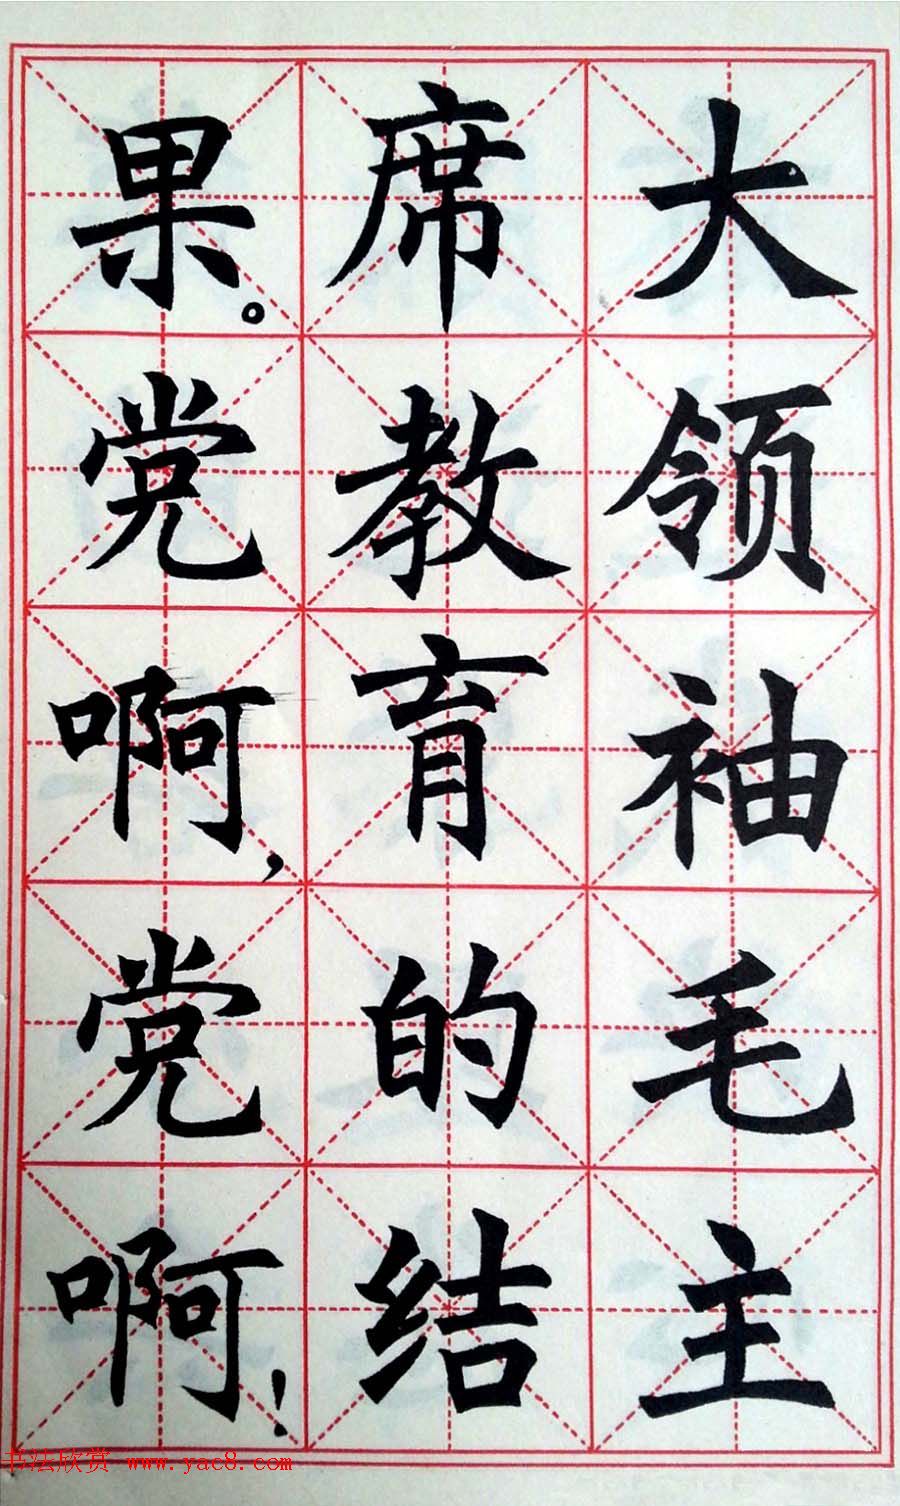 大领袖毛主
席教育的结
果。党啊,党啊!
书法欣赏 www.yac8.com